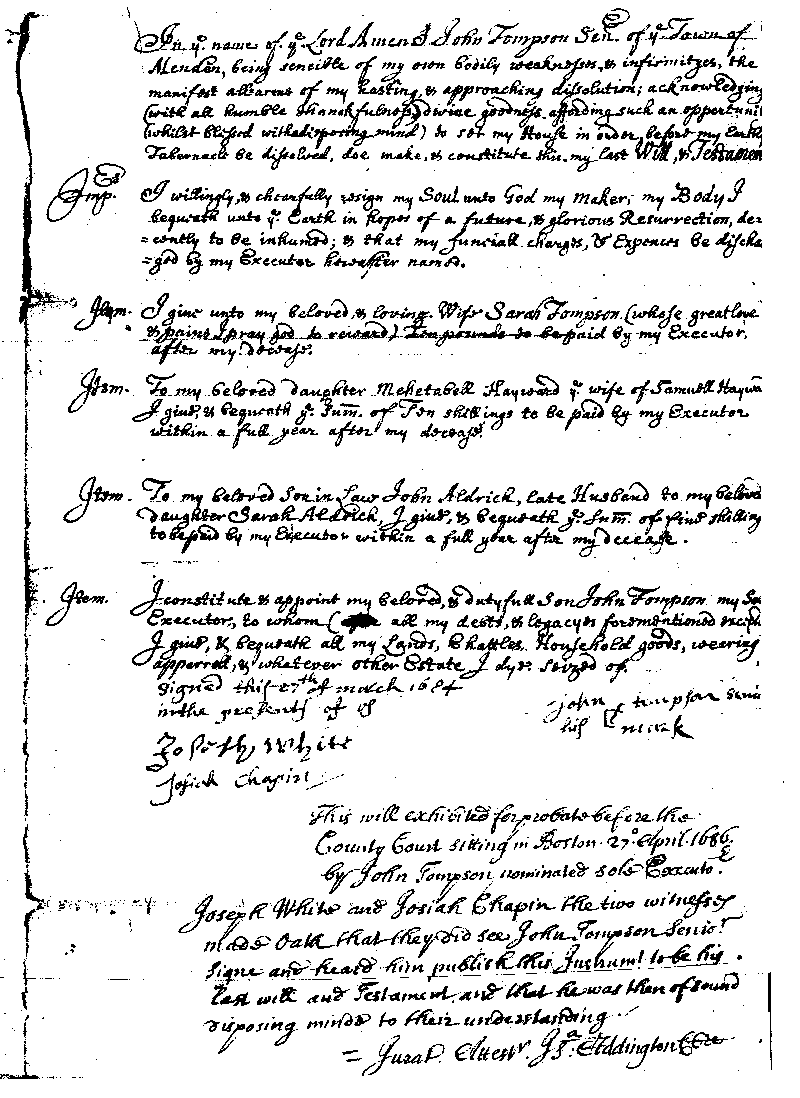 In yᵉ name of yᵉ Lord Amen I John Tompson Senʳ. of yᵉ Town of
Mendon, being sencible of my own bodily weaknesses, & infirmityes, the
manifest allarms of my hasting, & approaching dissolution; acknowledging
(with all humble thankfulness) divine goodness affording such an opportuni
(whilst blessed with a disposing mind) to set my House in order, before my Earth
Tabernacle be dissolved, doe make, & constitute this my last Will, & Testamen
Imp.ʳˢ I willingly, & chearfully resign my Soul unto God my Maker; my Body I
bequeath unto yᵉ Earth in hopes of a future, & glorious Resurrection, de=
=cently to be inhumed; & that my funerall charges, & Expences be discha
=ged by my Executor hereafter named.
Item. I give unto my beloved, & loving Wife Sarah Tompson (whose great love
& pains I pray god to reward) Ten pounds to be paid by my Executor,
after my decease.
Item. To my beloved daughter Mehetabell Hayward yᵉ wife of Samuell Haywa
I give, & bequeath yᵉ Sum̄. of Ten shillings to be paid by my Executor
within a full year after my decease.
Item. To my beloved Son in Law John Aldrick, late Husband to my belove
daughter Sarah Aldrick, I give, & bequeath yᵉ Sum̄. of five shilling
to be paid by my Executor within a full year after my decease.
Item. I constitute & appoint my beloved, & dutyfull Son John Tompson my So
Executor, to whom ( all my debts, & legacyes forementioned except
I give, & bequeath all my Lands, Chattles, Household goods, wearing
apperrell, & whatever other Estate I dye seized of.
Signed this 27ᵗʰ of march 1684
in the presents of us
John tompson senir
his mark
Joseph White
Josiah Chapin
This will exhibited for probate before the
County Court sitting in Boston. 27º. April. 1686.
by John Tompson nominated sole Executoʳ.
Joseph White and Josiah Chapin the two witnesses
made Oath that they did see John Tompson Senioʳ
signe and heard him publish this Instrumᵗ to be his
last will and Testament and that he was then of sound
disposing minde to their understanding
= Jurat. Attestʳ. Jsᵃ. Addington Cler